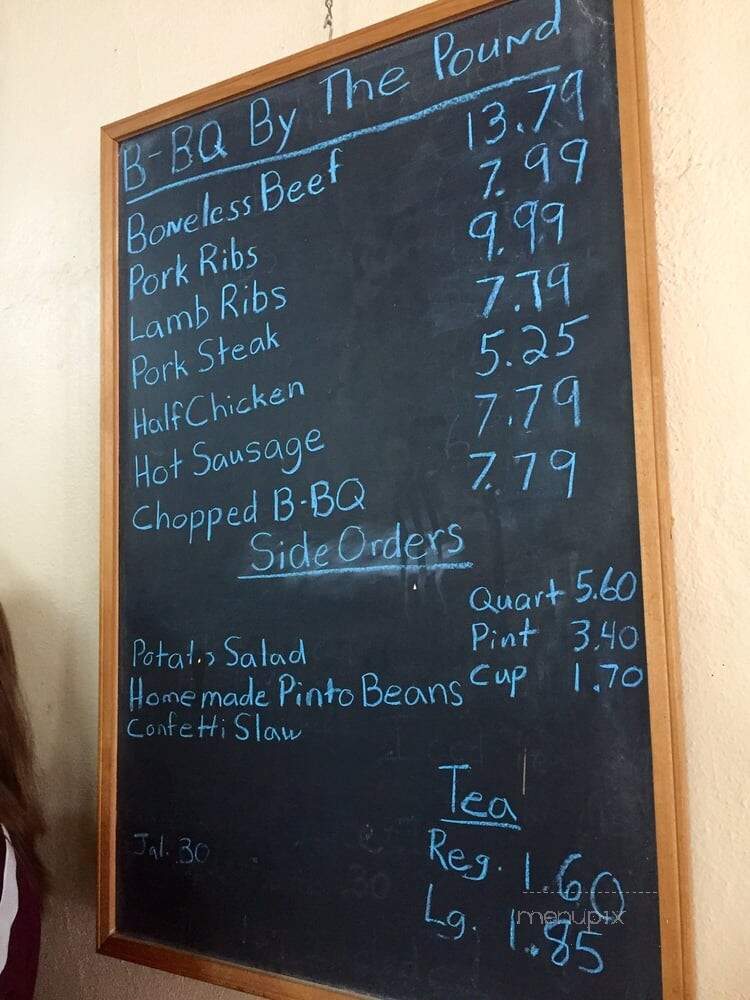 B-BQ By The Pound
Boneless Beef 13.79
Pork Ribs 7.99
Lamb Ribs 9.99
Pork Steak 7.79
Half Chicken 5.25
Hot Sausage 7.79
Chopped B-BQ 7.79
Side Orders
Quart 5.60
Potato Salad Pint 3.40
Homemade Pinto Beans Cup 1.70
Confetti Slaw
Tea
Jal. 30
Reg. 1.60
Lg. 1.85
menupix